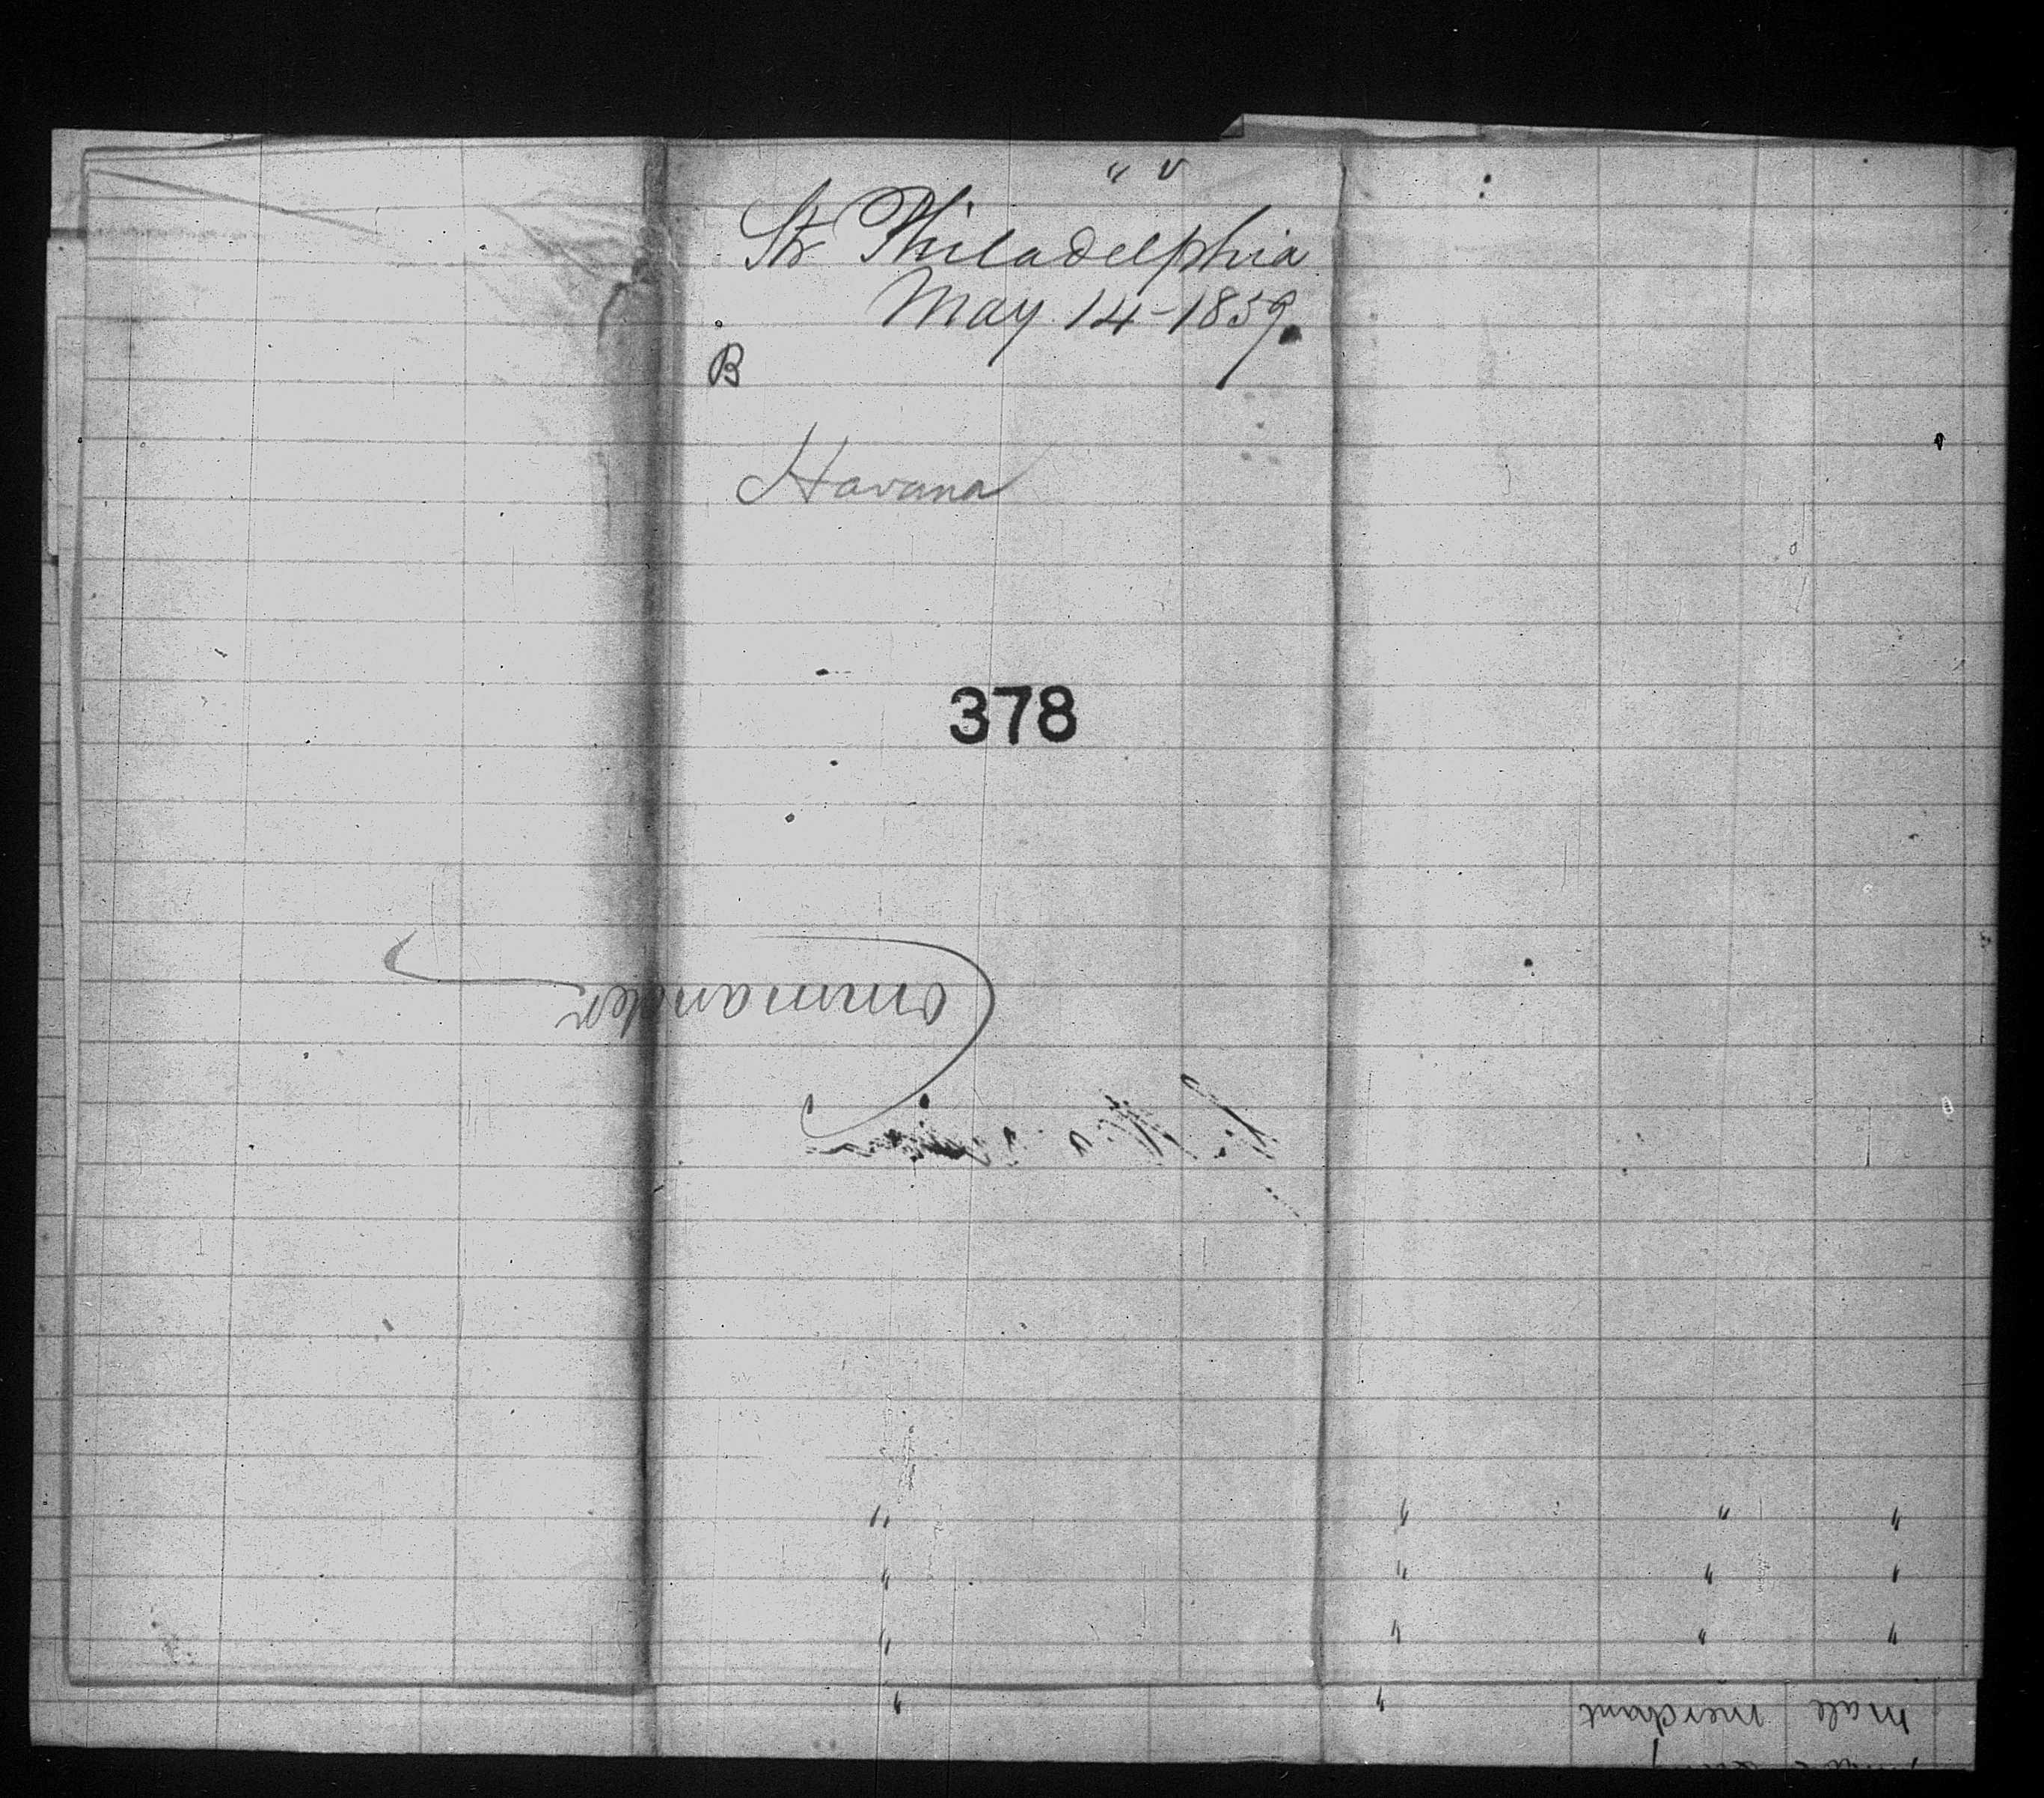 " v
Str Philadelphia
May 14-1859.
B
Havana
378
Commander
" " " "
" " " "
" " " "
" "
Male merchant